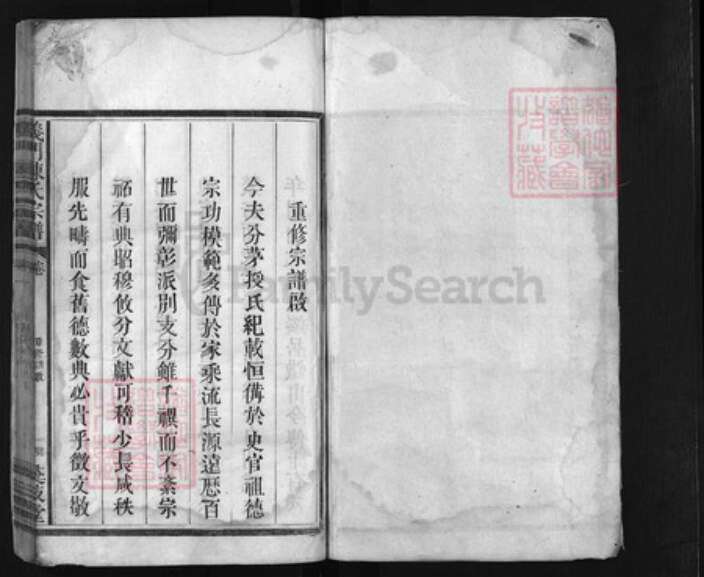 重修宗譜啟
今夫分茅授氏紀載恒備於史官祖德
宗功模範多傳於家乘流長源遠歷百
世而彌彰派別支分雖千禩而不紊宗
祏有典昭穆攸分文獻可稽少長咸秩
服先疇而食舊德數典必貴乎徵文敬
義門陳氏宗譜
卷
一
FamilySearch
譜學會